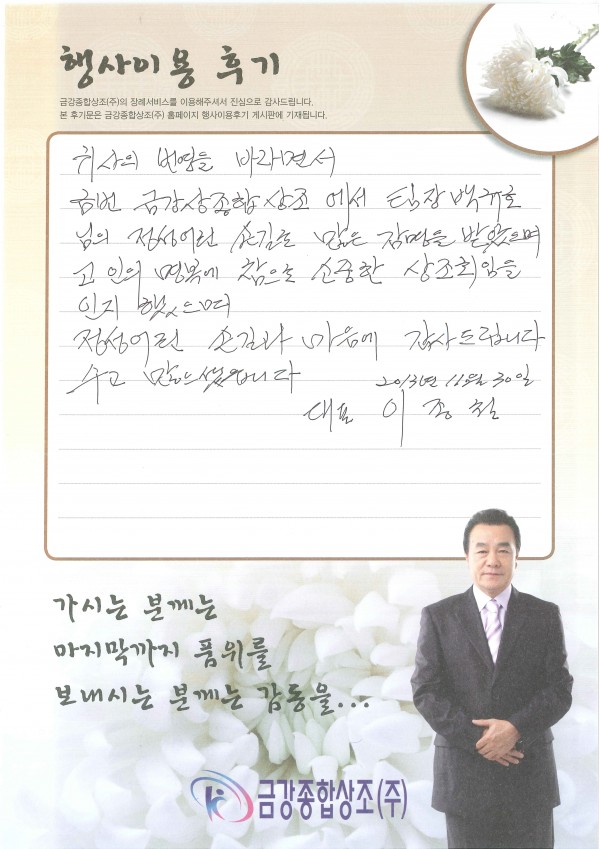 행사이용 후기
금강종합상조(주)의 장례서비스를 이용해주셔서 진심으로 감사드립니다.
본 후기문은 금강종합상조(주) 홈페이지 행사이용후기 게시판에 기재됩니다.
귀사의 번영을 바라면서
금번 금강상종합상조 에서 팀장 백귀호
님의 정성어린 손길로 많은 감명을 받았으며
고인의 명복에 참으로 소중한 상조회임을
인지 했으며
정성어린 손길과 마음에 감사드립니다
수고 많으셨습니다
2013년 11월 30일
대표 이종철
가시는 분께는
마지막까지 품위를
보내시는 분께는 감동을...
금강종합상조(주)